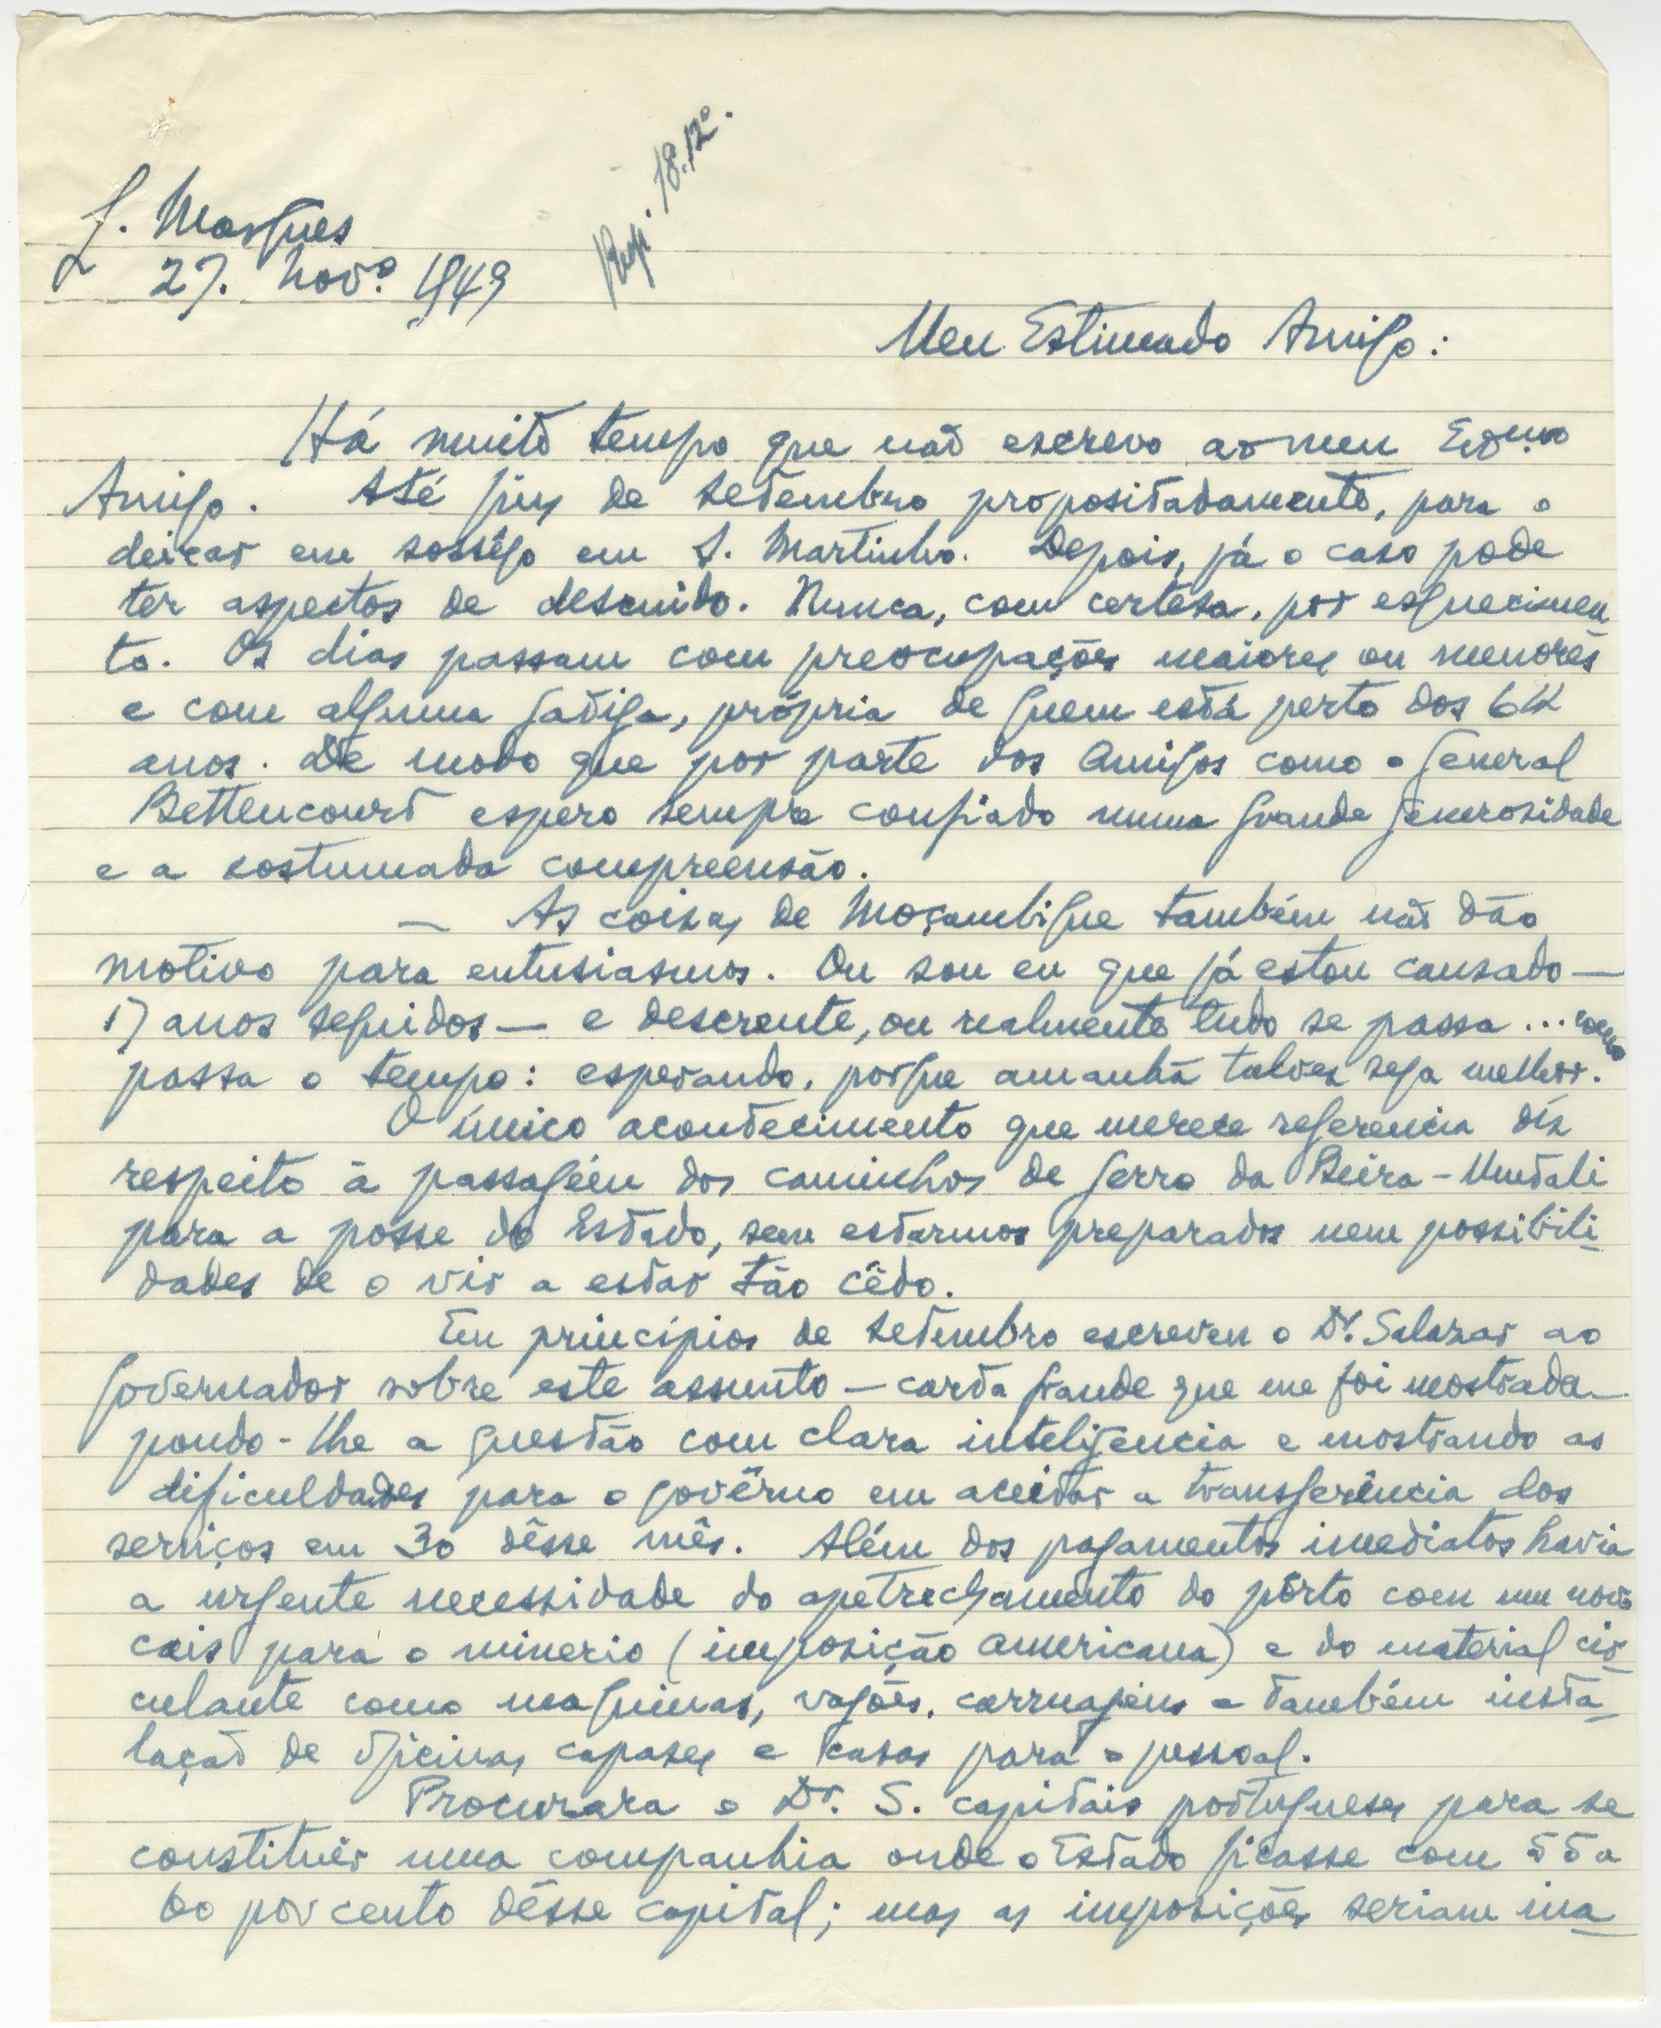 L. Marques
27. Nov.º 1949
Resp. 18.12º.
Meu Estimado Amigo:
Há muito tempo que não escrevo ao meu Exmo
Amigo. Até fins de setembro propositadamente, para o
deixar em sossêgo em S. Martinho. Depois, já o caso pode
ter aspectos de descuido. Nunca, com certesa, por esquecimen
to. Os dias passam com preocupações maiores ou menores
e com alguma fadiga, própria de quem está perto dos 64
anos. De modo que por parte dos Amigos como o General
Bettencourt espero sempre confiado numa grande generosidade
e a costumada compreensão.
— As coisas de Moçambique também não dão
motivo para entusiasmos. Ou sou eu que já estou cansado —
17 anos seguidos — e descrente, ou realmente tudo se passa... como
passa o tempo: esperando, porque amanhã talvez seja melhor.
O único acontecimento que merece referencia diz
respeito à passagem dos caminhos de ferro da Beira - Umtali
para a posse do Estado, sem estarmos preparados nem possibili-
dades de o vir a estar tão cêdo.
Em princípios de setembro escreveu o Dr. Salazar ao
Governador sobre este assunto — carta grande que me foi mostrada —
pondo-lhe a questão com clara inteligencia e mostrando as
dificuldades para o govêrno em aceitar a transferência dos
serviços em 30 dêsse mês. Além dos pagamentos imediatos havia
a urgente necessidade do apetrechamento do pôrto com um novo
cais para o minerio (imposição americana) e do material cir-
culante como maquinas, vagões, carruagens e também insta-
lação de oficinas capases e casas para o pessoal.
Procurara o Dr. S. capitais portugueses para se
constituir uma companhia onde o Estado ficasse com 55 a
60 por cento dêsse capital; mas as imposições seriam ina-